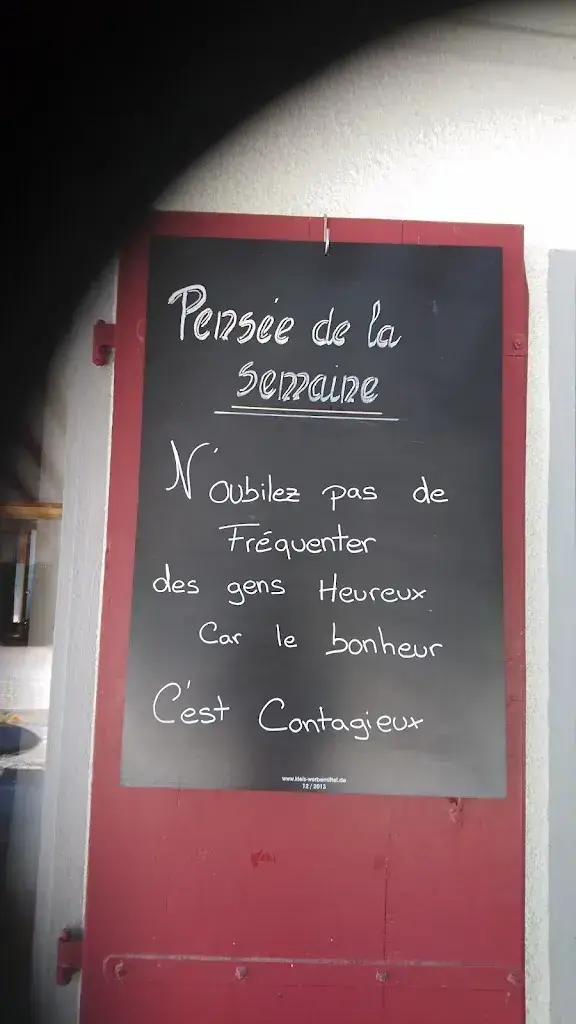 Pensée de la
semaine
N'oubilez pas de
Fréquenter
des gens Heureux
Car le bonheur
C'est Contagieux
www.kleis-werbemittel.de
12 / 2013